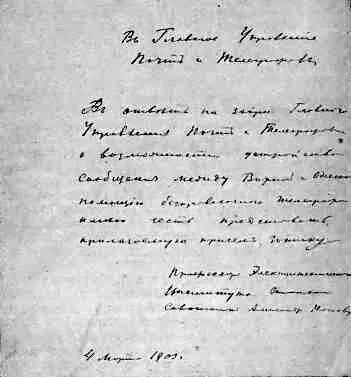 Въ Главное Управленіе
Почтъ и Телеграфовъ
Въ отвѣтъ на запросъ Главнаго
Управленія Почтъ и Телеграфовъ
о возможности устройства
сообщенія между Варной и Одессой
помощію безпроволочнаго телеграфа
имѣю честь представить
прилагаемую при семъ
Профессоръ Электротехническаго
Института
Александръ Поповъ
4 Марта 190